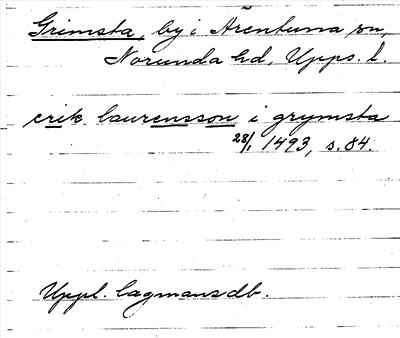 Grimsta, by i Ärentuna sn,
Norunda hd, Upps. l.
erik laurensson i grymsta
28/1 1493, s. 84.
Uppl. lagmansdb.